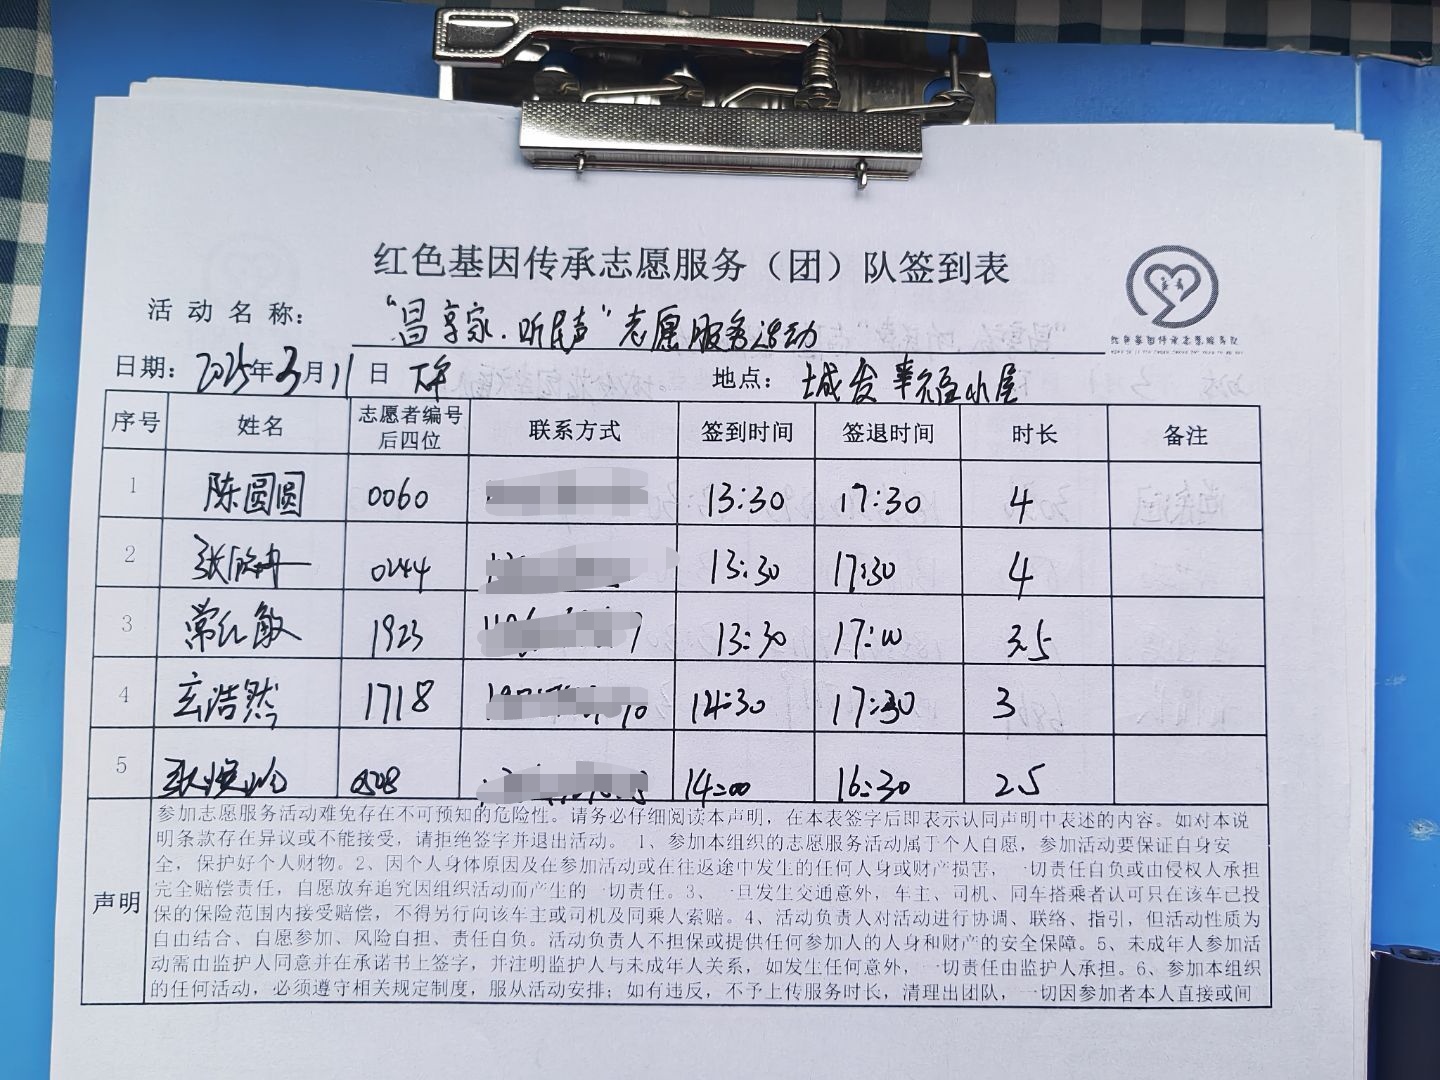 红色基因传承志愿服务（团）队签到表
活动名称：“昌享家·听民声”志愿服务活动
红色基因传承志愿服务队
日期：2025年3月11日 下午 地点：城发幸福小屋
序号 姓名 志愿者编号后四位 联系方式 签到时间 签退时间 时长 备注
1 陈圆圆 0060 13:30 17:30 4
2 张 0244 13:30 17:30 4
3 常红敏 1923 13:30 17:00 3.5
4 玄浩然 1718 14:30 17:30 3
5 0508 14:00 16:30 2.5
声明
参加志愿服务活动难免存在不可预知的危险性。请务必仔细阅读本声明，在本表签字后即表示认同声明中表述的内容。如对本说
明条款存在异议或不能接受，请拒绝签字并退出活动。 1、参加本组织的志愿服务活动属于个人自愿，参加活动要保证自身安
全，保护好个人财物。2、因个人身体原因及在参加活动或在往返途中发生的任何人身或财产损害，一切责任自负或由侵权人承担
完全赔偿责任，自愿放弃追究因组织活动而产生的一切责任。3、一旦发生交通意外，车主、司机、同车搭乘者认可只在该车已投
保的保险范围内接受赔偿，不得另行向该车主或司机及同乘人索赔。4、活动负责人对活动进行协调、联络、指引，但活动性质为
自由结合、自愿参加、风险自担、责任自负。活动负责人不担保或提供任何参加人的人身和财产的安全保障。5、未成年人参加活
动需由监护人同意并在承诺书上签字，并注明监护人与未成年人关系，如发生任何意外，一切责任由监护人承担。6、参加本组织
的任何活动，必须遵守相关规定制度，服从活动安排；如有违反，不予上传服务时长，清理出团队，一切因参加者本人直接或间